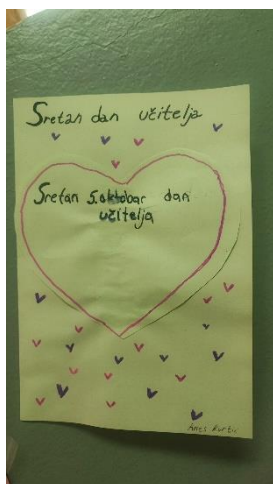 Sretan dan učitelja
Sretan 5.oktobar dan
učitelja